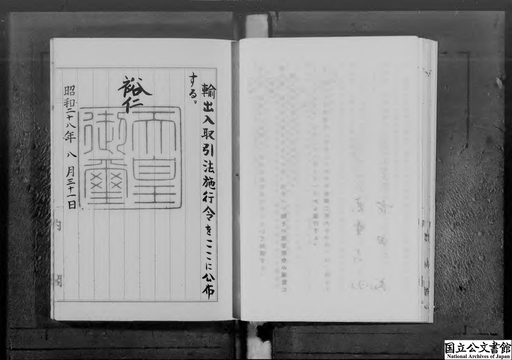 輸出入取引法施行令をここに公布
する。
裕仁
天皇
御璽
昭和二十八年八月三十一日
内閣
国立公文書館
National Archives of Japan